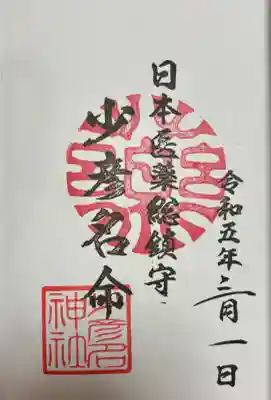 令和五年三月一日
日本医薬総鎮守
少彦名命
少彦名
神社